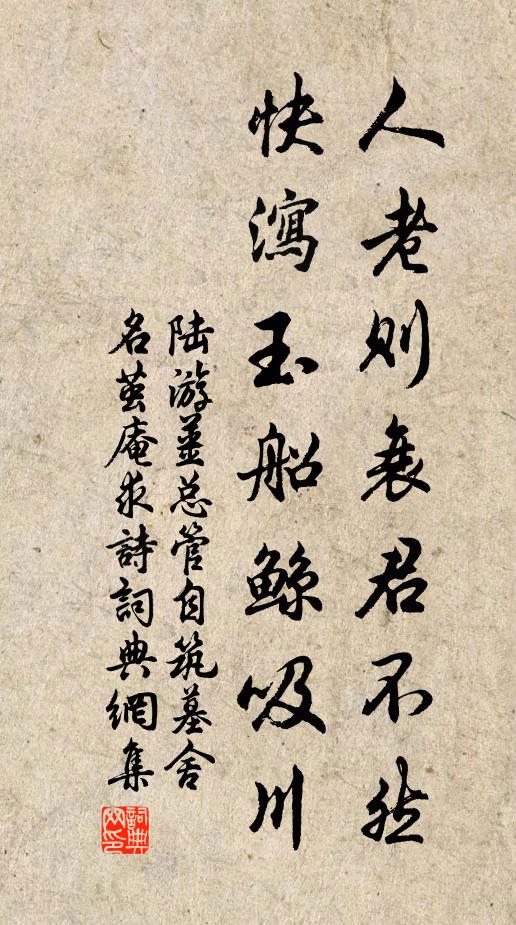 人老则衰君不然
快瀉玉船鲸吸川
陆游姜总管自筑墓舍
名茧庵求詩詞典網集
詞典网印